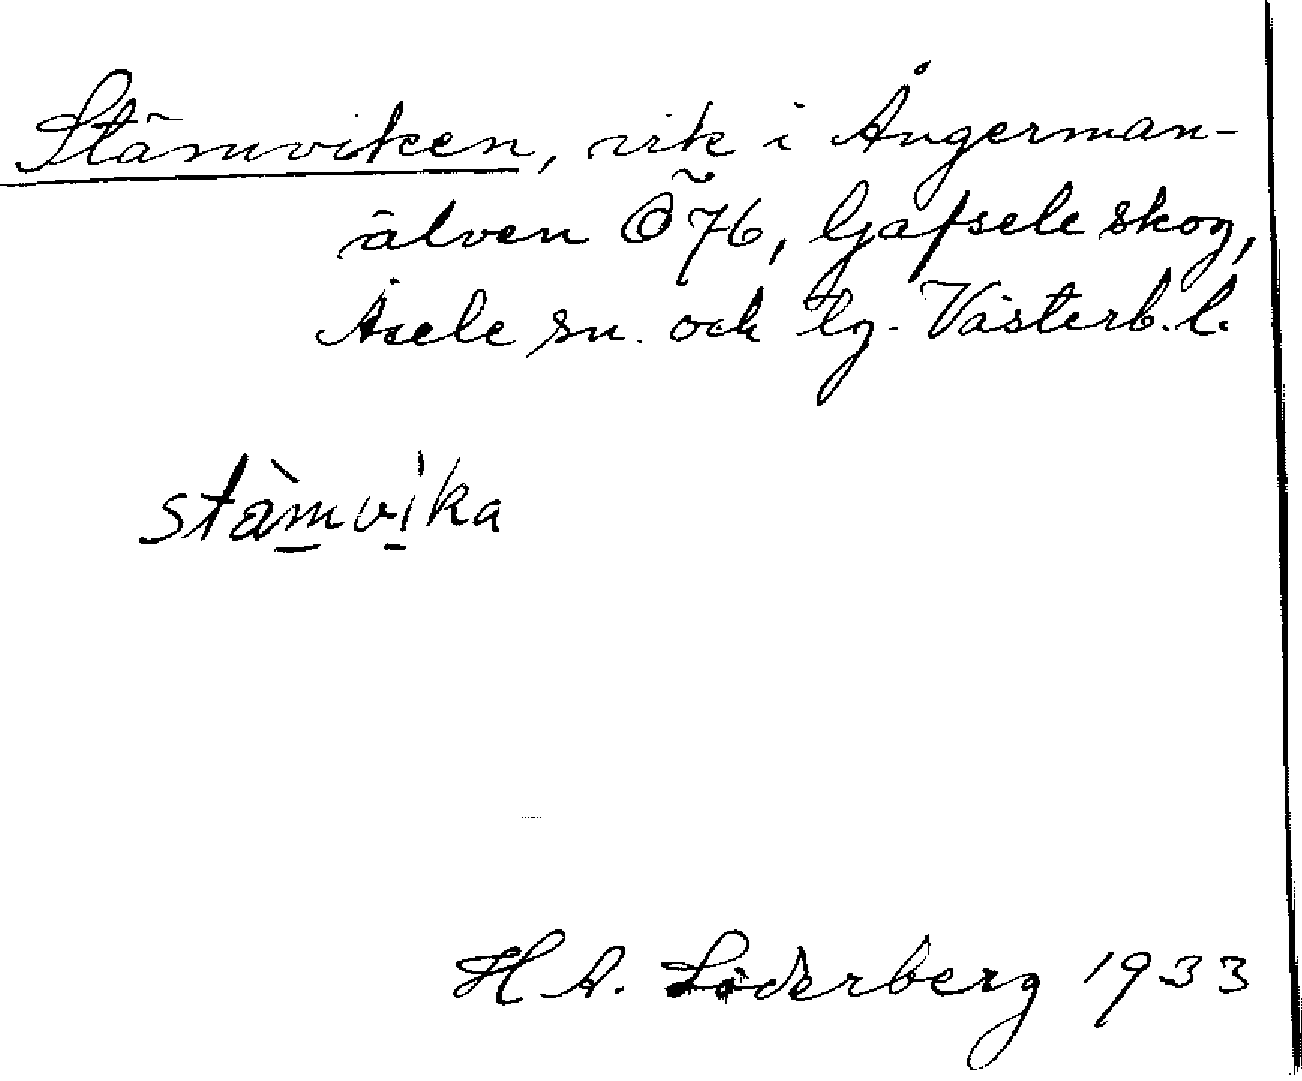 Stämviken, vik i Ångerman-
älven Ö 76, Gafsele skog,
Åsele sn. och lg. Västerb. l.
stämvika
H. A. Söderberg 1933